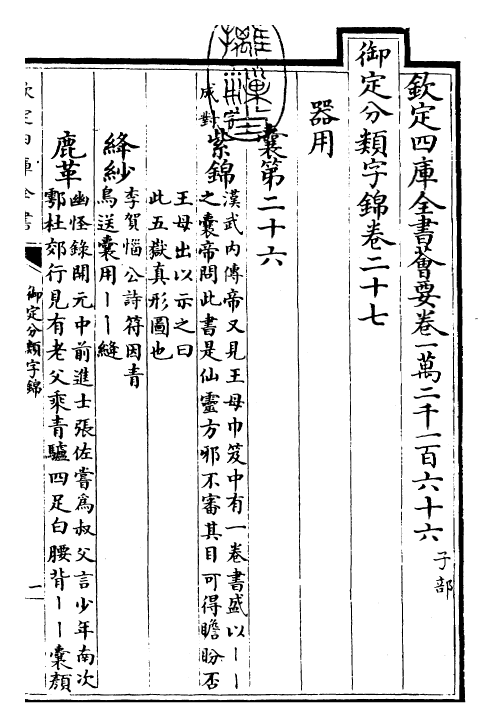 欽定四庫全書薈要卷一萬二千一百六十六 子部
御定分類字錦卷二十七
器用
囊第二十六
二字
成對
紫錦
漢武內傳帝又見王母巾笈中有一卷書盛以丨丨
之囊帝問此書是仙靈方邪不審其目可得瞻盼否
王母出以示之曰
此五嶽真形圖也
絳紗
李賀惱公詩符因青
鳥送囊用丨丨縫
鹿革
幽怪錄開元中前進士張佐嘗為叔父言少年南次
鄠杜郊行見有老父乘青驢四足白腰背丨丨囊顏
欽定四庫全書
御定分類字錦
一